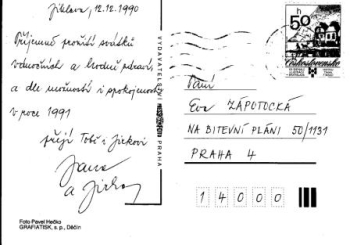 Jihlava, 12.12.1990
Příjemné prožití svátků
vánočních a hodně zdraví,
a dle možností i spokojenosti
v roce 1991
přejí Tobě i Jirkovi
Jana
a Jirka
Foto Pavel Hečko
GRAFIATISK, s. p., Děčín
VYDAVATELSTVÍ
PRAHA
50 h
Československo
Paní
Eva ZÁPOTOCKÁ
NA BITEVNÍ PLÁNI 50/1131
PRAHA 4
1 4 0 0 0